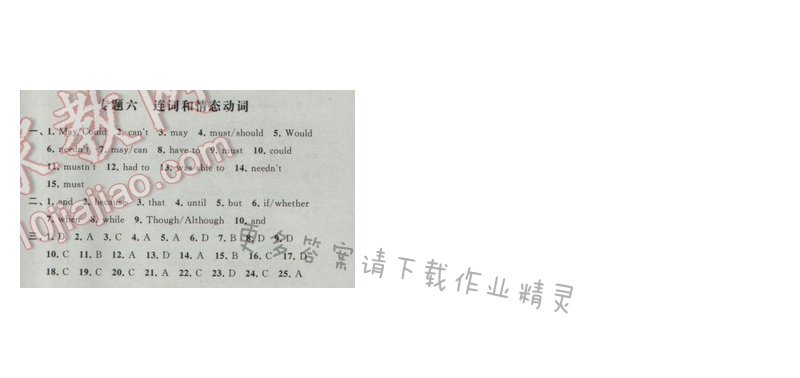 专题六 连词和情态动词
一、1. May/Could 2. can't 3. may 4. must/should 5. Would
6. needn't 7. may/can 8. have to 9. must 10. could
11. mustn't 12. had to 13. was able to 14. needn't
15. must
二、1. and 2. because 3. that 4. until 5. but 6. if/whether
7. when 8. while 9. Though/Although 10. and
三、1. D 2. A 3. C 4. A 5. A 6. D 7. B 8. D 9. D
10. C 11. B 12. A 13. D 14. A 15. B 16. C 17. D
18. C 19. C 20. C 21. A 22. C 23. D 24. C 25. A
更多答案请下载作业精灵
10jiajiao.com